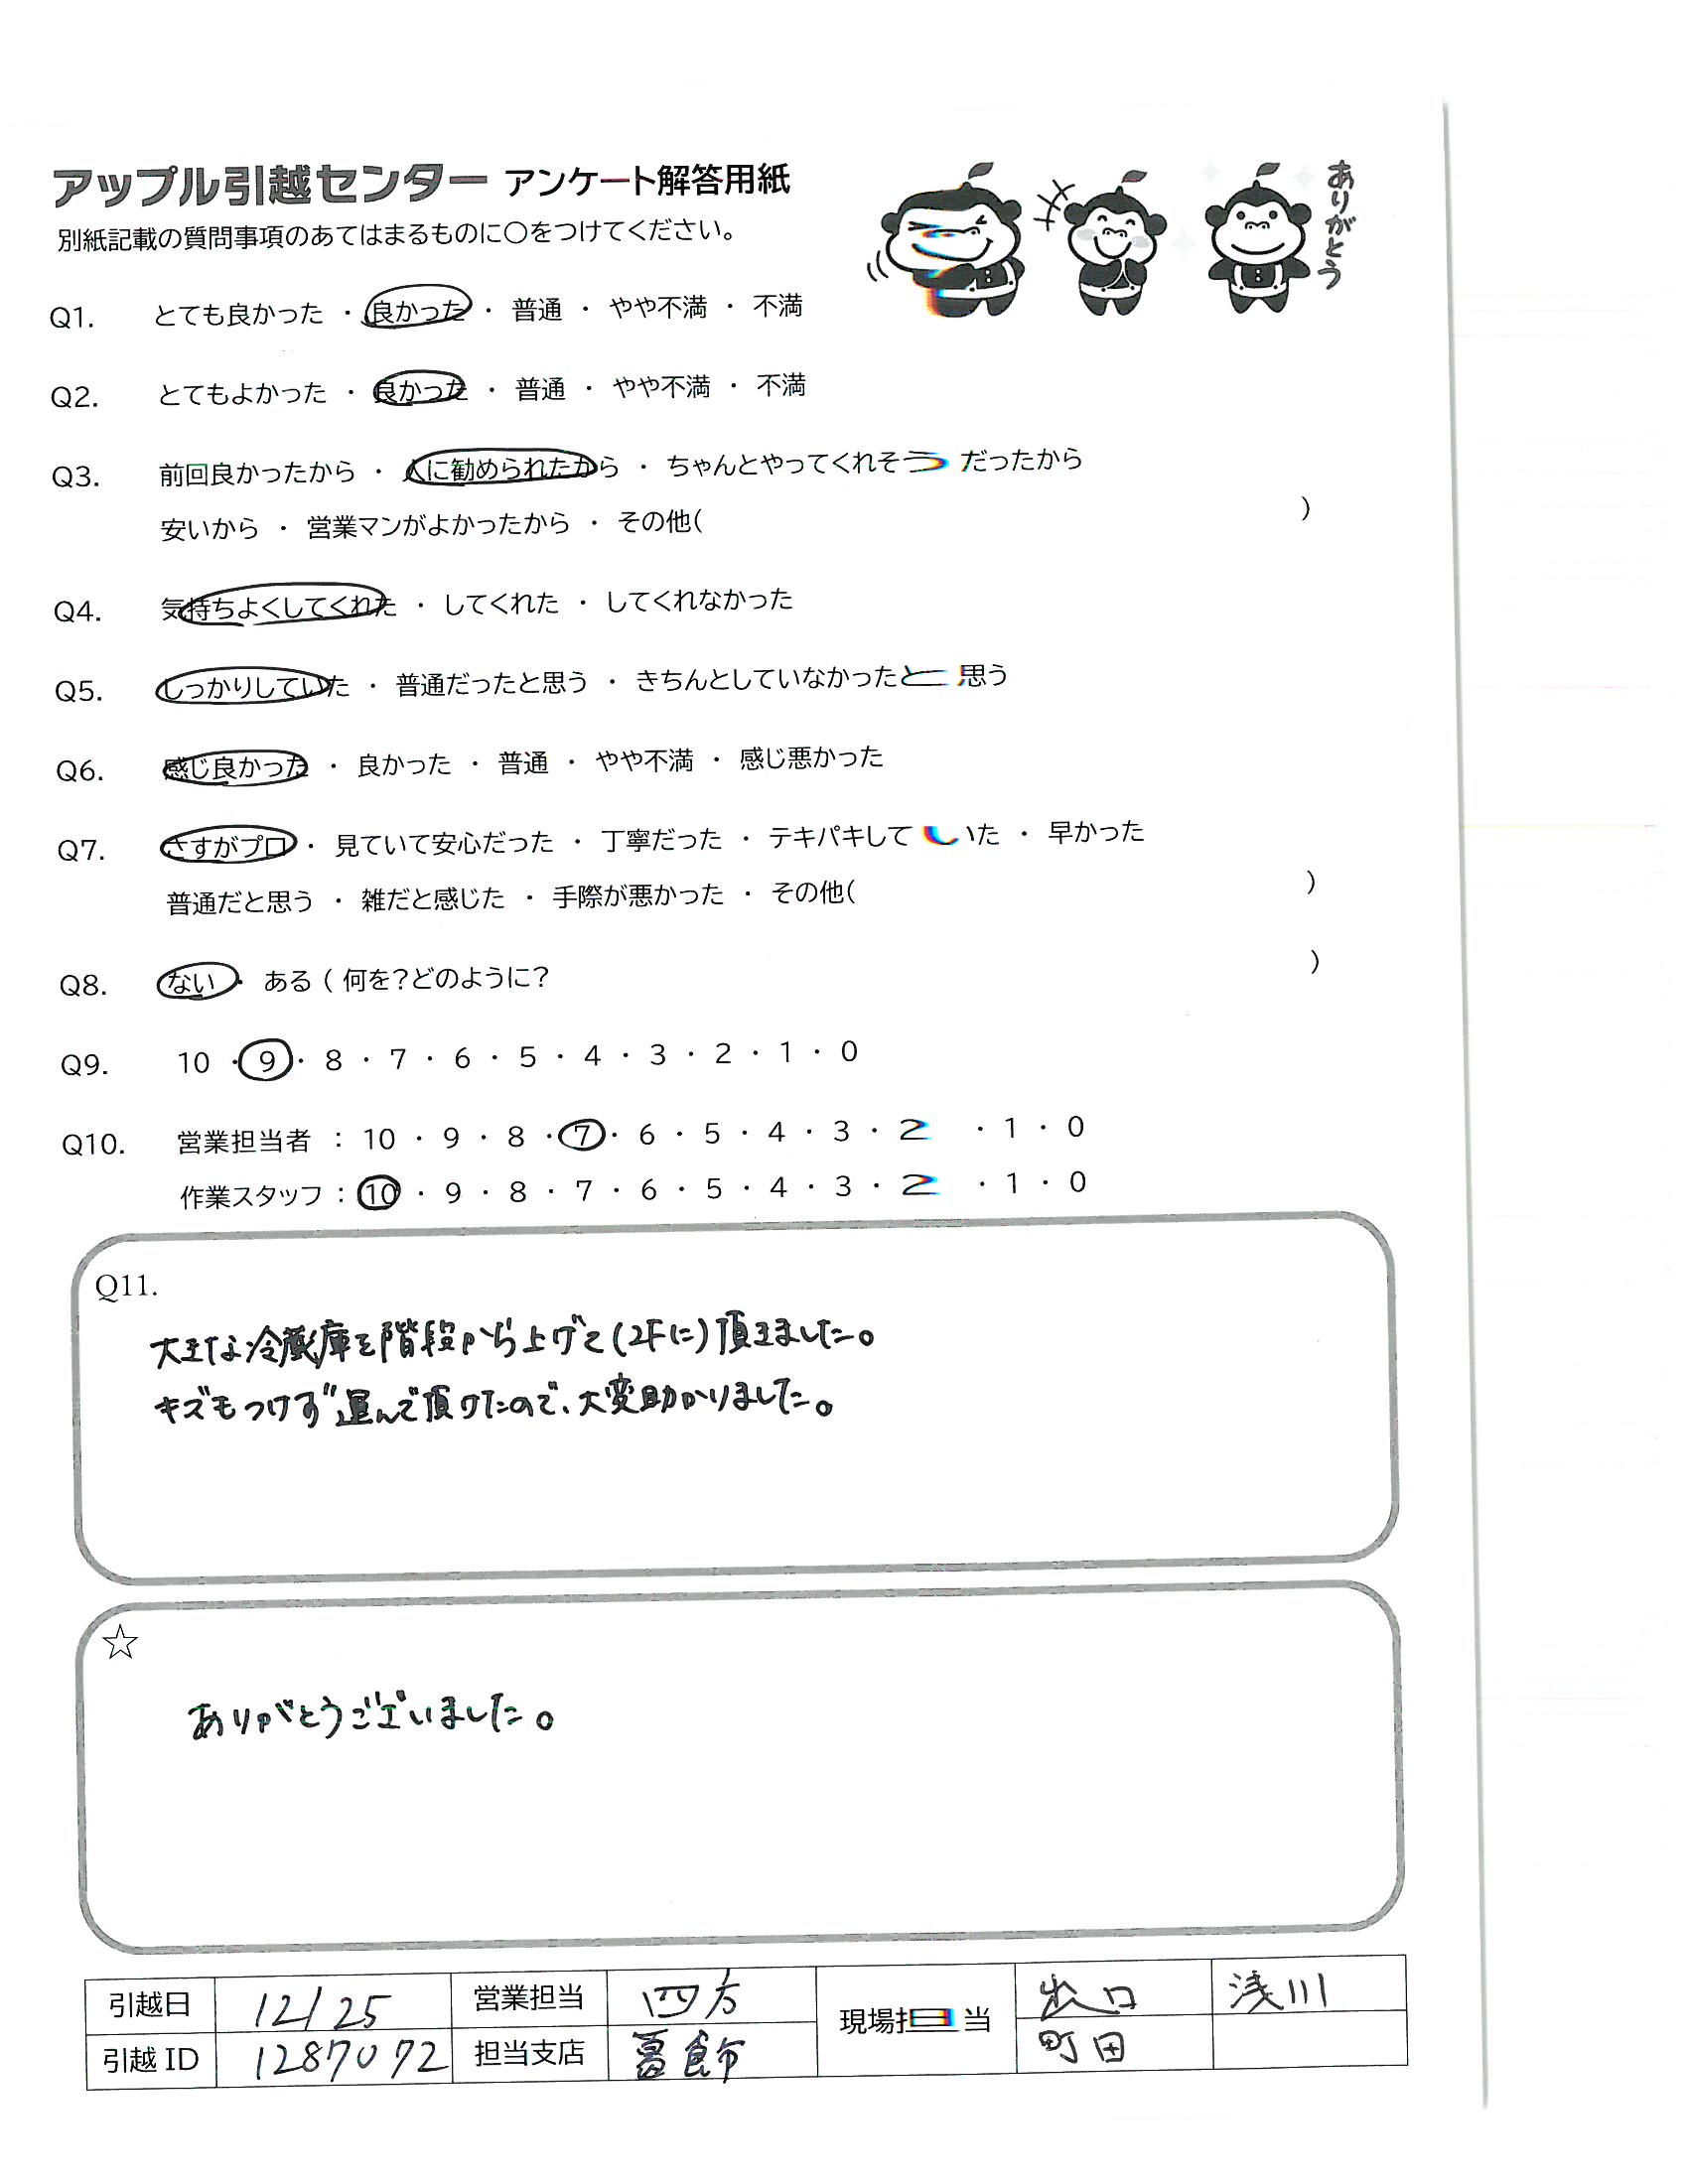 アップル引越センター アンケート解答用紙
ありがとう
別紙記載の質問事項のあてはまるものに○をつけてください。
Q1. とても良かった ・ 良かった ・ 普通 ・ やや不満 ・ 不満
Q2. とてもよかった ・ 良かった ・ 普通 ・ やや不満 ・ 不満
Q3. 前回良かったから ・ 人に勧められたから ・ ちゃんとやってくれそうだったから
安いから ・ 営業マンがよかったから ・ その他( )
Q4. 気持ちよくしてくれた ・ してくれた ・ してくれなかった
Q5. しっかりしていた ・ 普通だったと思う ・ きちんとしていなかったと思う
Q6. 感じ良かった ・ 良かった ・ 普通 ・ やや不満 ・ 感じ悪かった
Q7. さすがプロ ・ 見ていて安心だった ・ 丁寧だった ・ テキパキしていた ・ 早かった
普通だと思う ・ 雑だと感じた ・ 手際が悪かった ・ その他( )
Q8. ない ・ ある ( 何を?どのように? )
Q9. 10 ・ 9 ・ 8 ・ 7 ・ 6 ・ 5 ・ 4 ・ 3 ・ 2 ・ 1 ・ 0
Q10. 営業担当者 : 10 ・ 9 ・ 8 ・ 7 ・ 6 ・ 5 ・ 4 ・ 3 ・ 2 ・ 1 ・ 0
作業スタッフ : 10 ・ 9 ・ 8 ・ 7 ・ 6 ・ 5 ・ 4 ・ 3 ・ 2 ・ 1 ・ 0
Q11.
大きな冷蔵庫を階段から上げて(2Fに)頂きました。
キズもつけず運んで頂けたので、大変助かりました。
☆
ありがとうございました。
引越日 12/25 営業担当 四方 現場担当 出口 浅川
引越 ID 1287072 担当支店 葛飾 町田